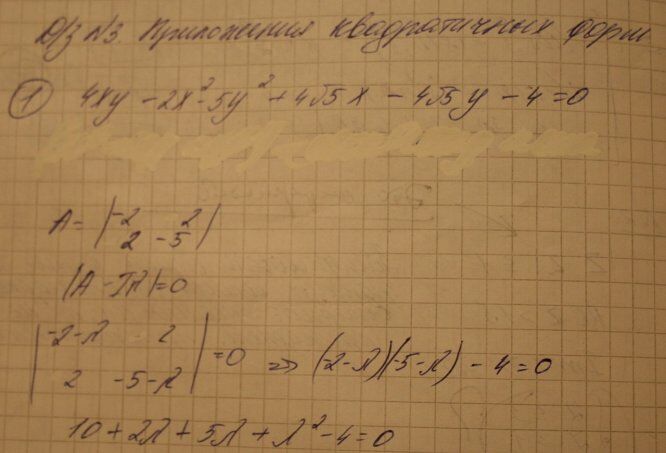 Д/З №3. Приложения квадратичных форм
① 4xy - 2x² - 5y² + 4√5x - 4√5y - 4 = 0
A = |-2 2|
2 -5
|A - Iλ| = 0
|-2-λ 2|
= 0 => (-2-λ)(-5-λ) - 4 = 0
2 -5-λ
10 + 2λ + 5λ + λ² - 4 = 0